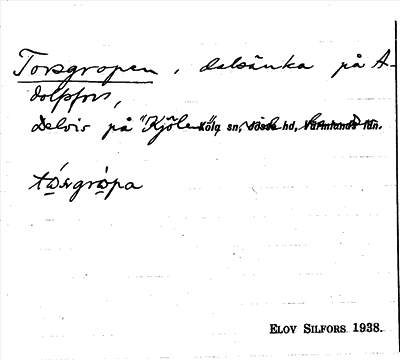 Torsgropen, dalsänka på A-
dolfsfors,
Delvis på "Kjölen" Köla sn, Jösse hd, Värmlands län.
tɷ́rsgrɷ̀pa
ELOV SILFORS 1938.